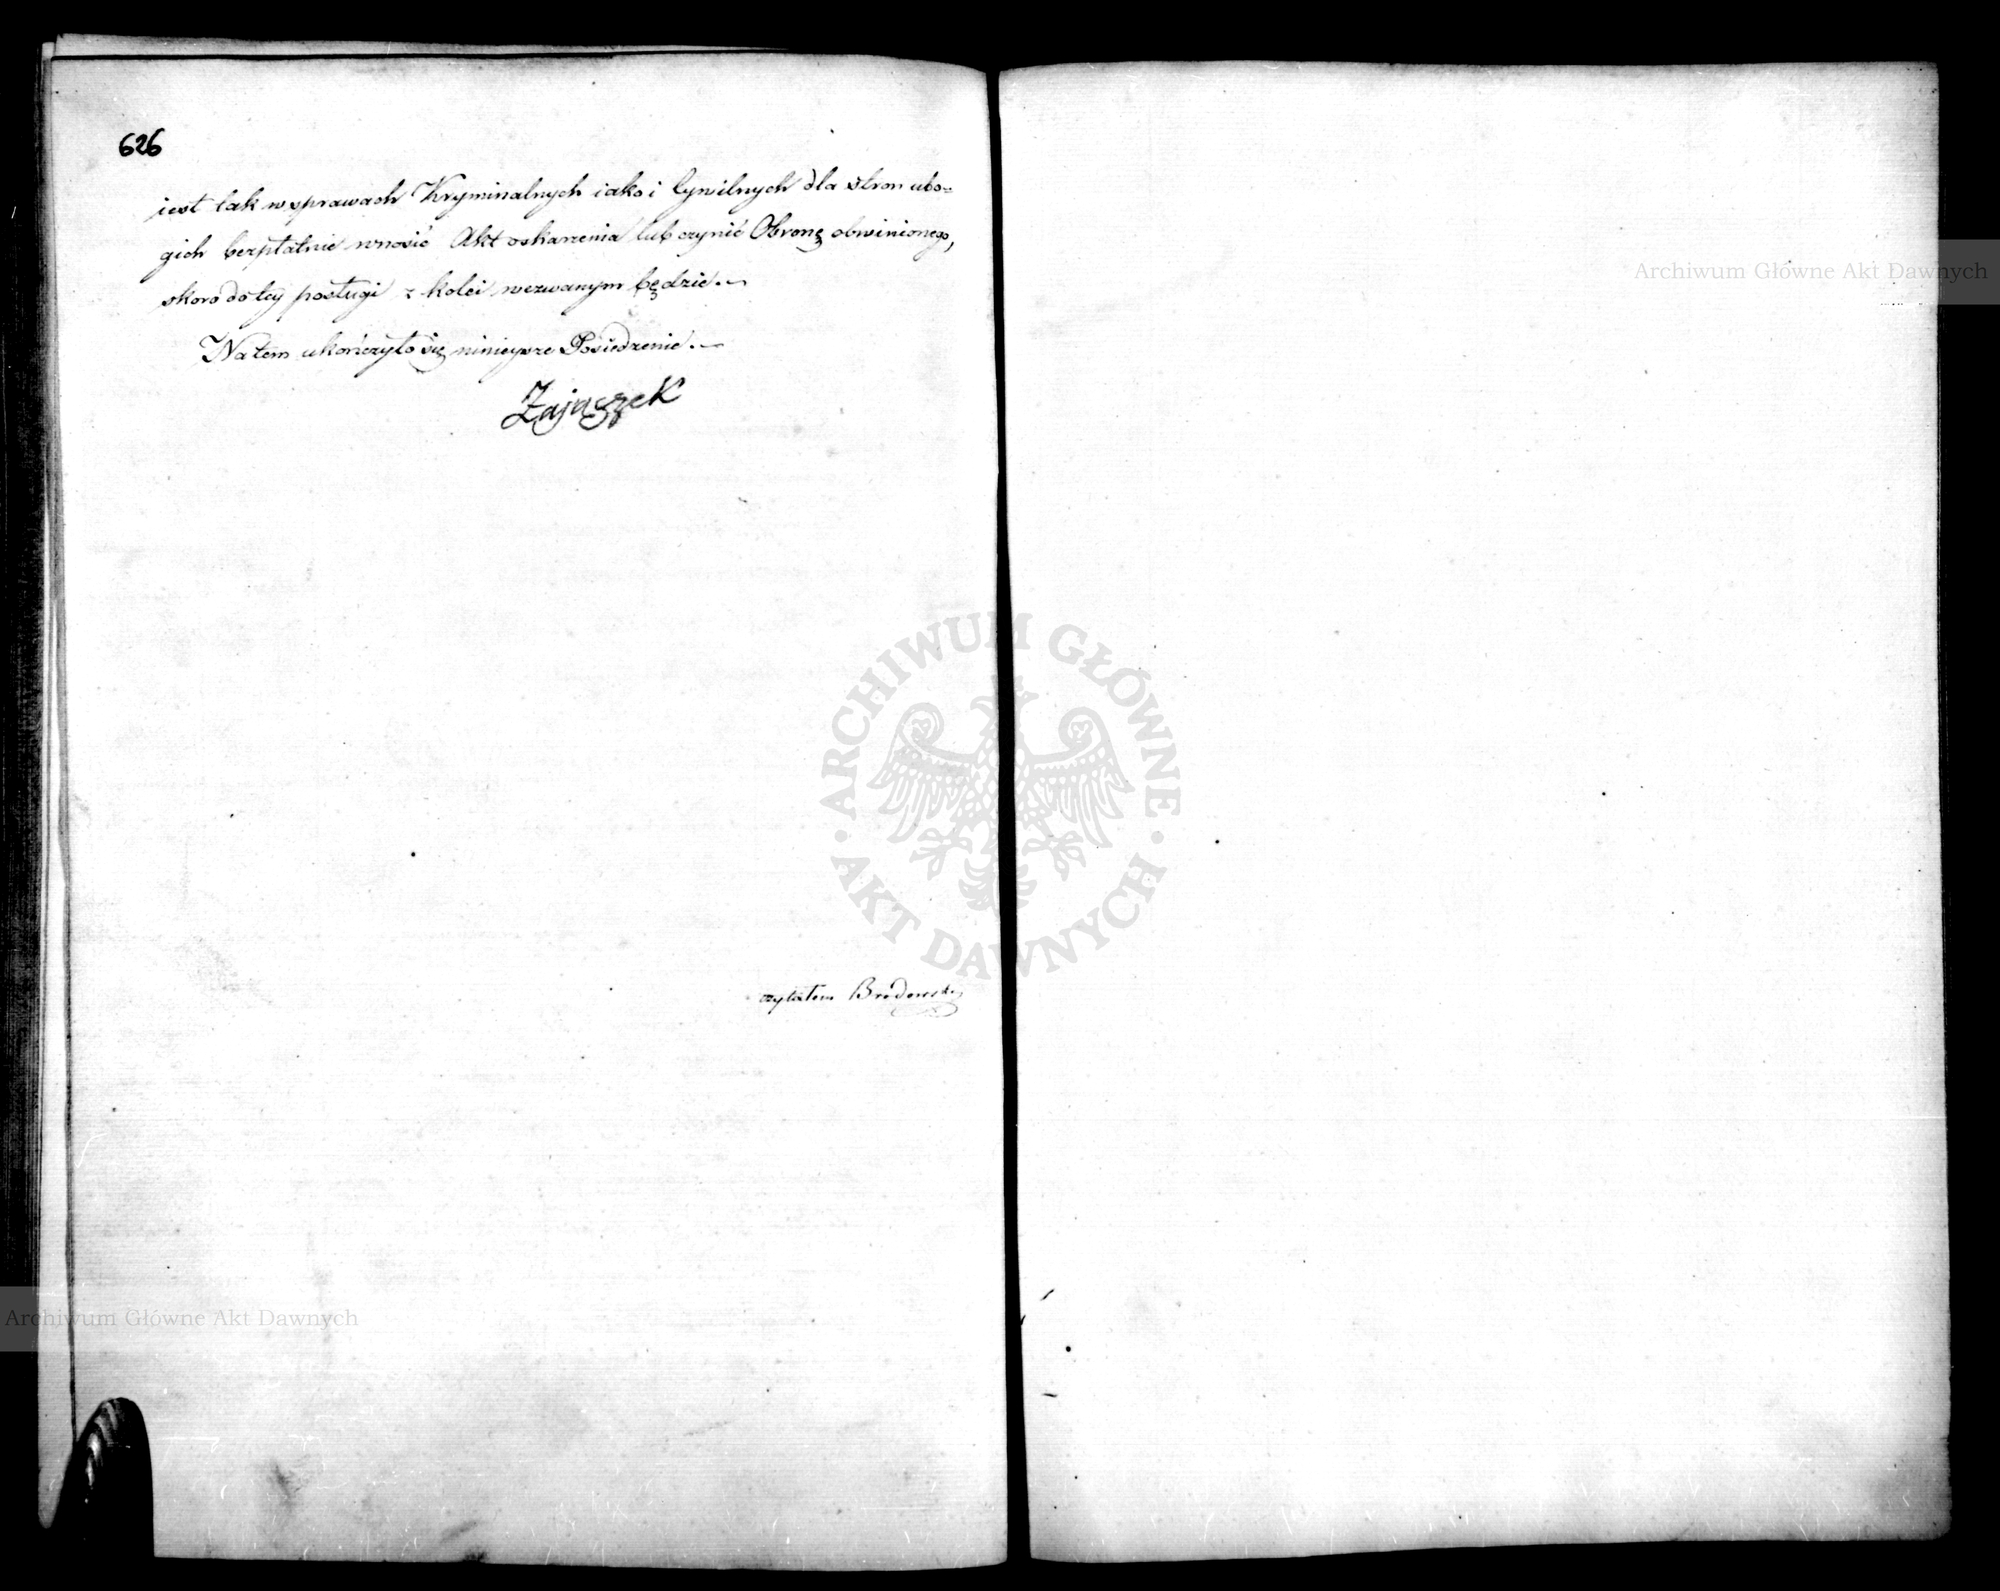 626
iest tak w sprawach Kryminalnych iako i Cywilnych dla stron ubo=
gich bezpłatnie wnosić Akt oskarzenia lub czynić Obronę obwinionego,
skoro do tey posługi z kolei wezwanym będzie.
Na tem ukończyło się ninieysze Posiedzenie.
Zajaczek
czytałem Brodowski
Archiwum Główne Akt Dawnych
ARCHIWUM GŁÓWNE
AKT DAWNYCH
Archiwum Główne Akt Dawnych